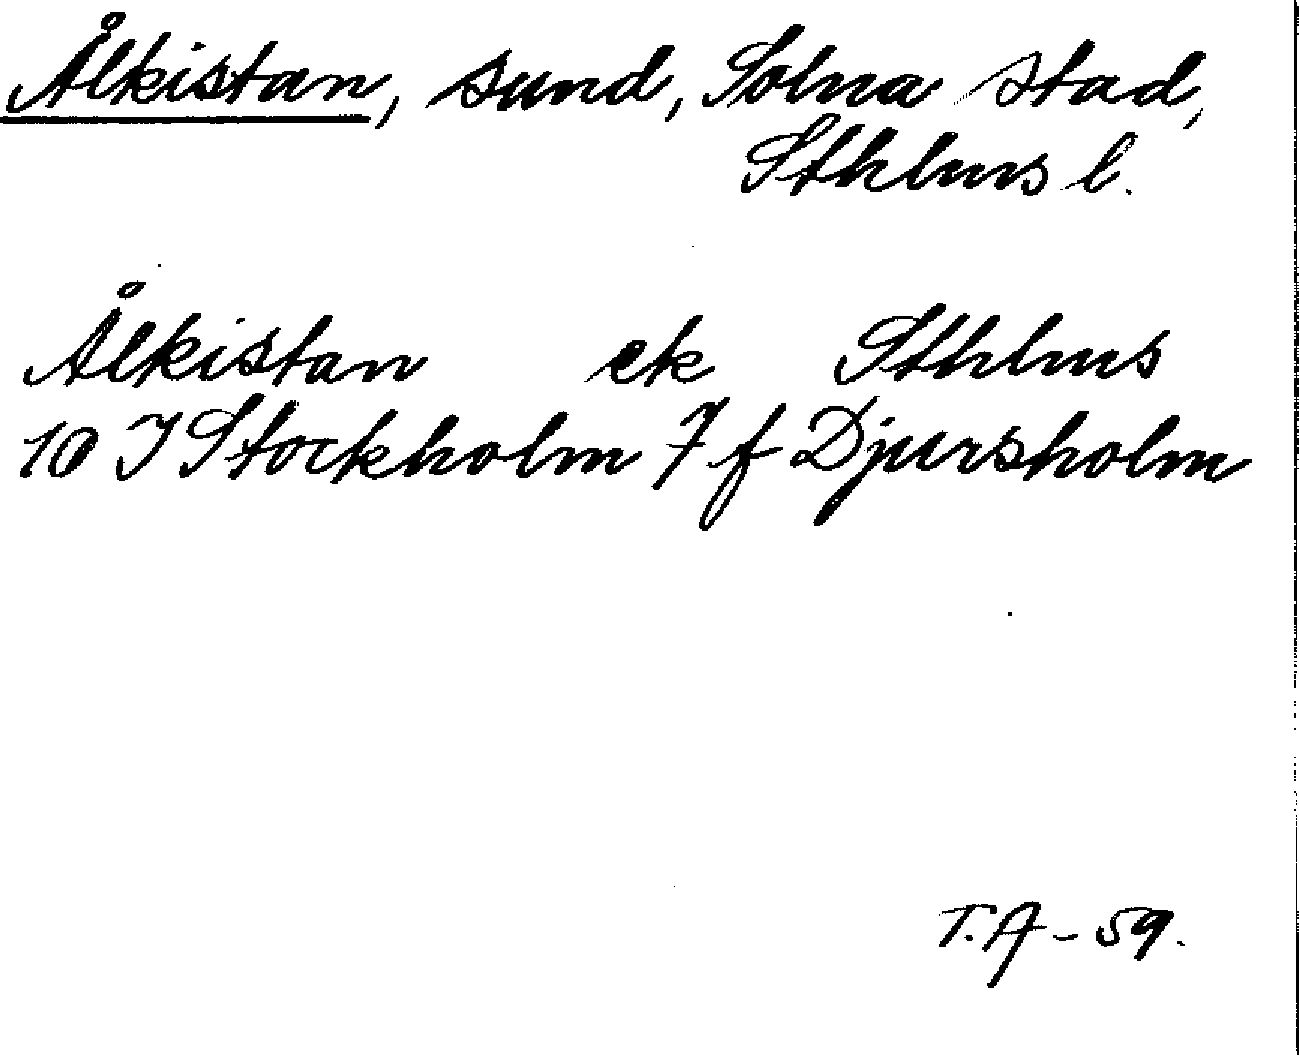 Ålkistan, sund, Solna stad,
Sthlms l.
Ålkistan ek Sthlms
10 I Stockholm 7 f Djursholm
T.A - 59.